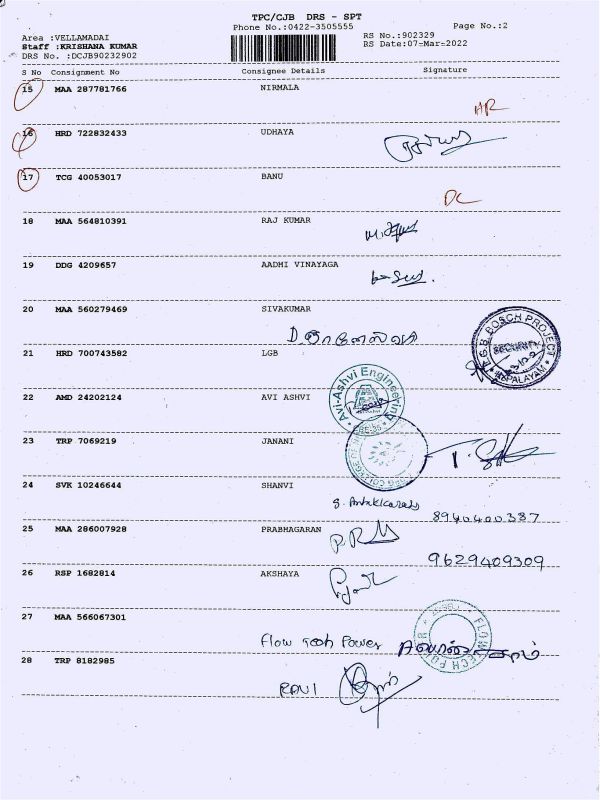 TPC/CJB DRS - SPT
Phone No.:0422-3505555
Page No.:2
Area :VELLAMADAI
RS No.:902329
Staff :KRISHANA KUMAR
RS Date:07-Mar-2022
DRS No. :DCJB90232902
S No Consignment No Consignee Details Signature
15 MAA 287781766 NIRMALA
16 HRD 722832433 UDHAYA
17 TCG 40053017 BANU
DC
18 MAA 564810391 RAJ KUMAR
19 DDG 4209657 AADHI VINAYAGA
20 MAA 560279469 SIVAKUMAR
21 HRD 700743582 LGB
SECURITY
22 AMD 24202124 AVI ASHVI
Avi-Ashvi Engineering
23 TRP 7069219 JANANI
24 SVK 10246644 SHANVI
8940400387
25 MAA 286007928 PRABHAGARAN
9629409309
26 RSP 1682814 AKSHAYA
27 MAA 566067301
Flow Tech Power
FLOWTECH POWER
28 TRP 8182985
RAVI